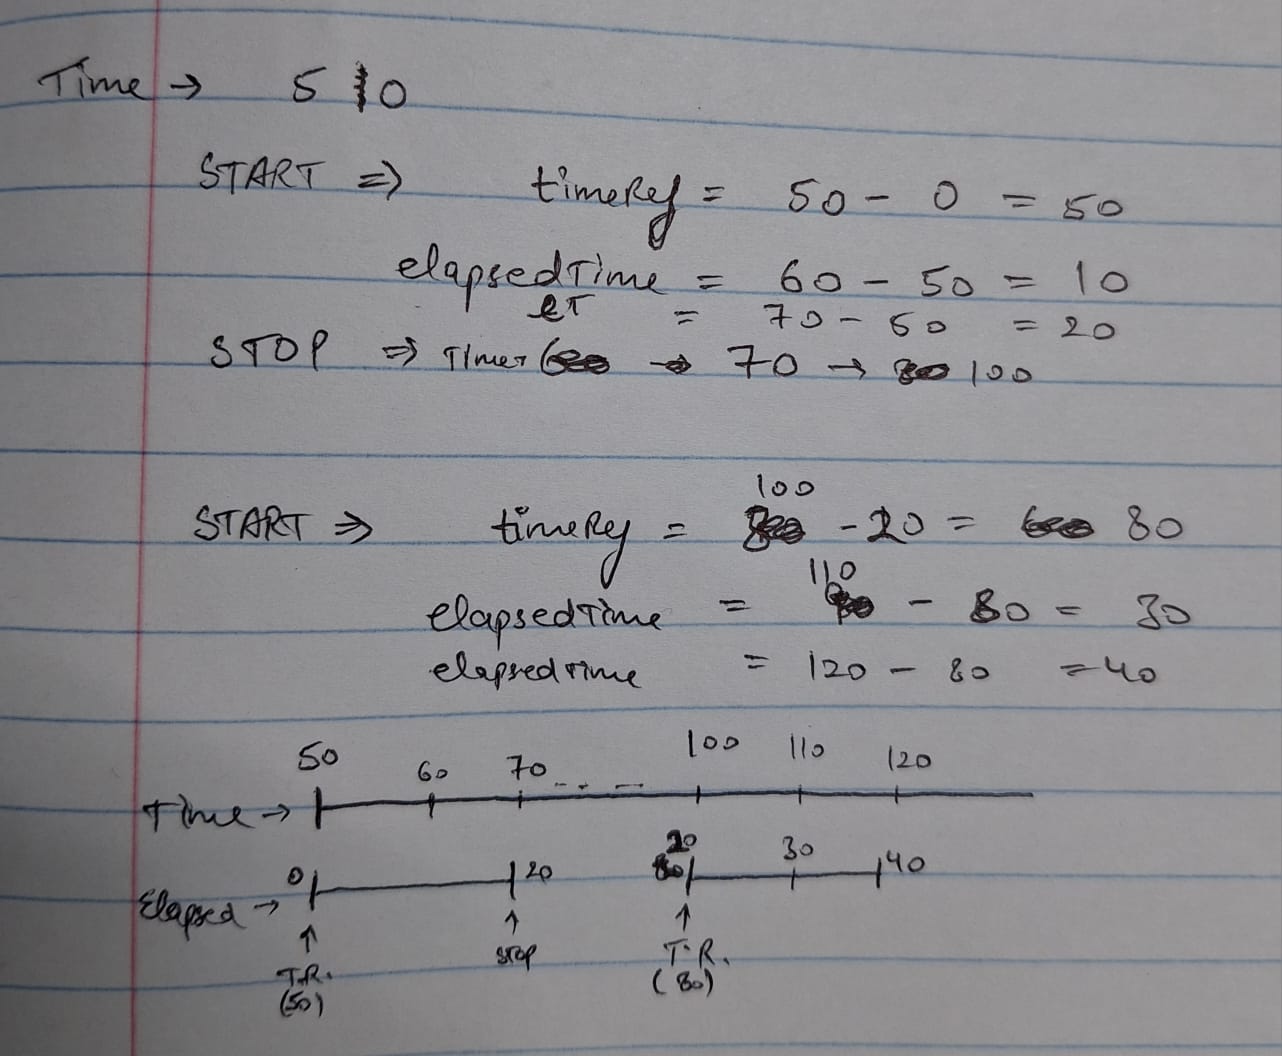 Time → 5 10
START ⇒ timeRef = 50 - 0 = 50
elapsedTime = 60 - 50 = 10
eT = 70 - 50 = 20
STOP ⇒ Timer → 70 → 100
START ⇒ timeRef = 100 - 20 = 80
elapsedTime = 110 - 80 = 30
elapsedTime = 120 - 80 = 40
50 60 70 ... 100 110 120
Time →
0 20 20 30 40
Elapsed →
↑ ↑ ↑
T.R. stop T.R.
(50) (80)